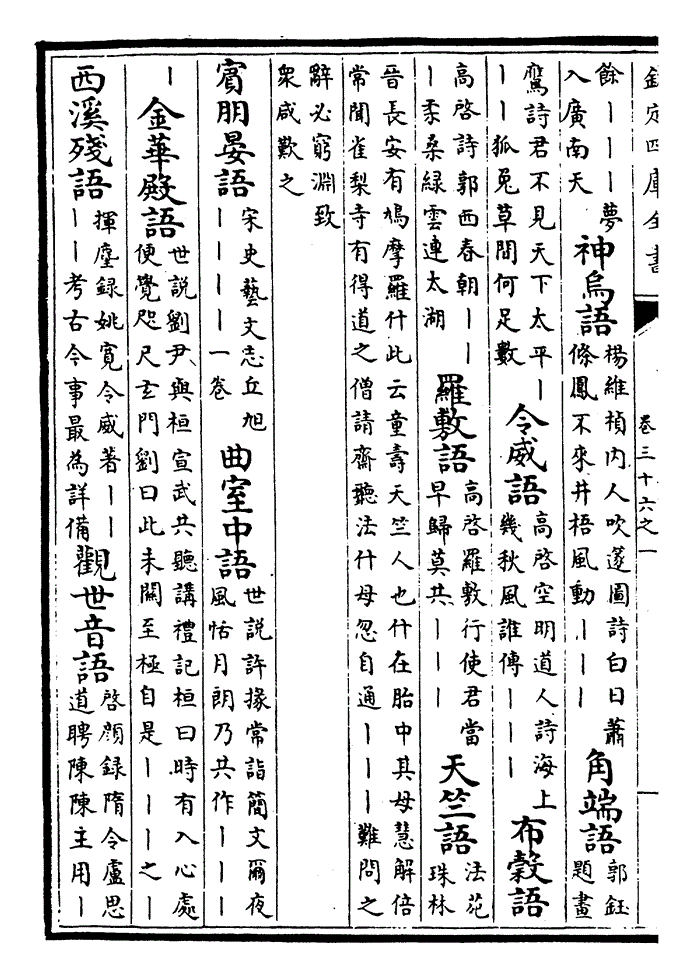 欽定四庫全書 卷三十六之一
餘｜｜｜夢入廣南天 神烏語 楊維楨内人吹篴圖詩白日蕭條鳳不來井梧風動｜｜｜ 角端語 郭鈺題畫
鷹詩君不見天下太平｜｜｜狐兎草間何足數 令威語 高啓空明道人詩海上幾秋風誰傳｜｜｜ 布穀語
高啓詩郭西春朝｜｜｜柔桑緑雲連太湖 羅敷語 高啓羅敷行使君當早歸莫共｜｜｜ 天竺語 法苑珠林
晉長安有鳩摩羅什此云童壽天竺人也什在胎中其母慧解倍常聞雀梨寺有得道之僧請齋聽法什母忽自通｜｜｜難問之
辭必窮淵致衆咸歎之
賓朋晏語 宋史藝文志丘旭｜｜｜｜一卷 曲室中語 世說許掾常詣簡文爾夜風恬月朗乃共作｜｜｜
｜ 金華殿語 世說劉尹與桓宣武共聽講禮記桓曰時有入心處便覺咫尺玄門劉曰此未關至極自是｜｜｜之｜
西溪殘語 揮麈録姚寛令威著｜｜｜｜考古今事最為詳備 觀世音語 啓顔録隋令盧思道聘陳陳主用｜